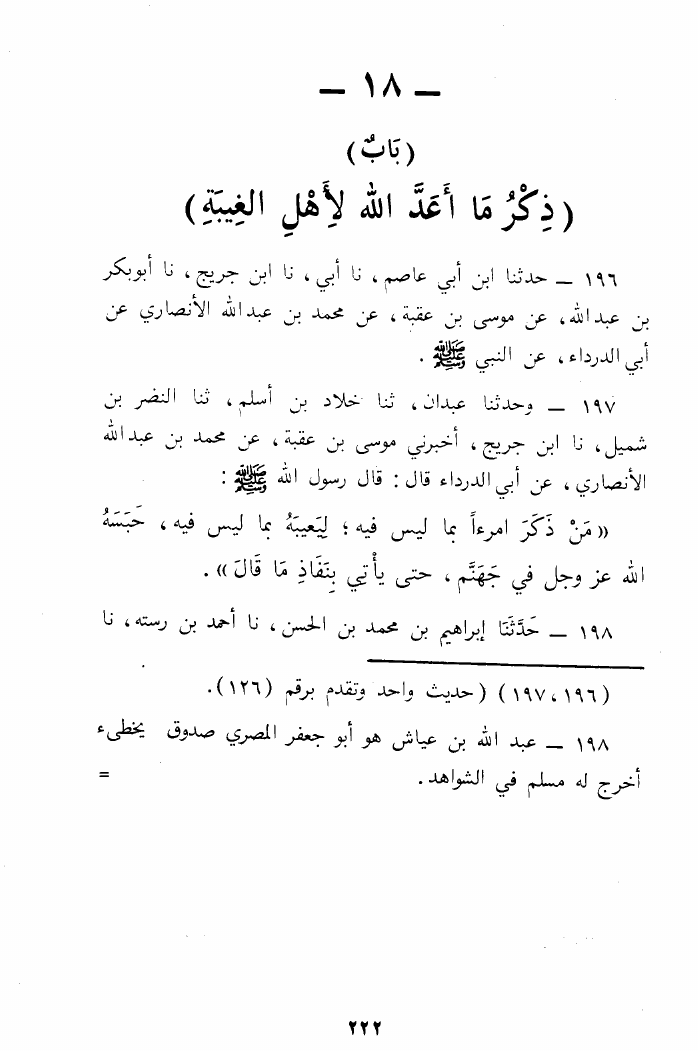 — ١٨ —
(بَابٌ)
(ذِكْرُ مَا أَعَدَّ الله لأَهْلِ الغِيبَةِ)
١٩٦ — حدثنا ابن أبي عاصم، نا أبي، نا ابن جريج، نا أبوبكر
بن عبدالله، عن موسى بن عقبة، عن محمد بن عبدالله الأنصاري عن
أبي الدرداء، عن النبي ﷺ .
١٩٧ — وحدثنا عبدان، ثنا خلاد بن أسلم، ثنا النضر بن
شميل، نا ابن جريج، أخبرني موسى بن عقبة، عن محمد بن عبدالله
الأنصاري، عن أبي الدرداء قال: قال رسول الله ﷺ :
«مَنْ ذَكَرَ امرءاً بما ليس فيه؛ لِيَعيبَهُ بما ليس فيه، حَبَسَهُ
الله عز وجل في جَهَنَّم، حتى يأْتِي بِنَفَاذِ مَا قَالَ».
١٩٨ — حَدَّثَنَا إبراهيم بن محمد بن الحسن، نا أحمد بن رسته، نا
(١٩٦، ١٩٧) (حديث واحد وتقدم برقم (١٢٦).
١٩٨ — عبد الله بن عياش هو أبو جعفر المصري صدوق يخطىء
أخرج له مسلم في الشواهد. =
٢٢٢